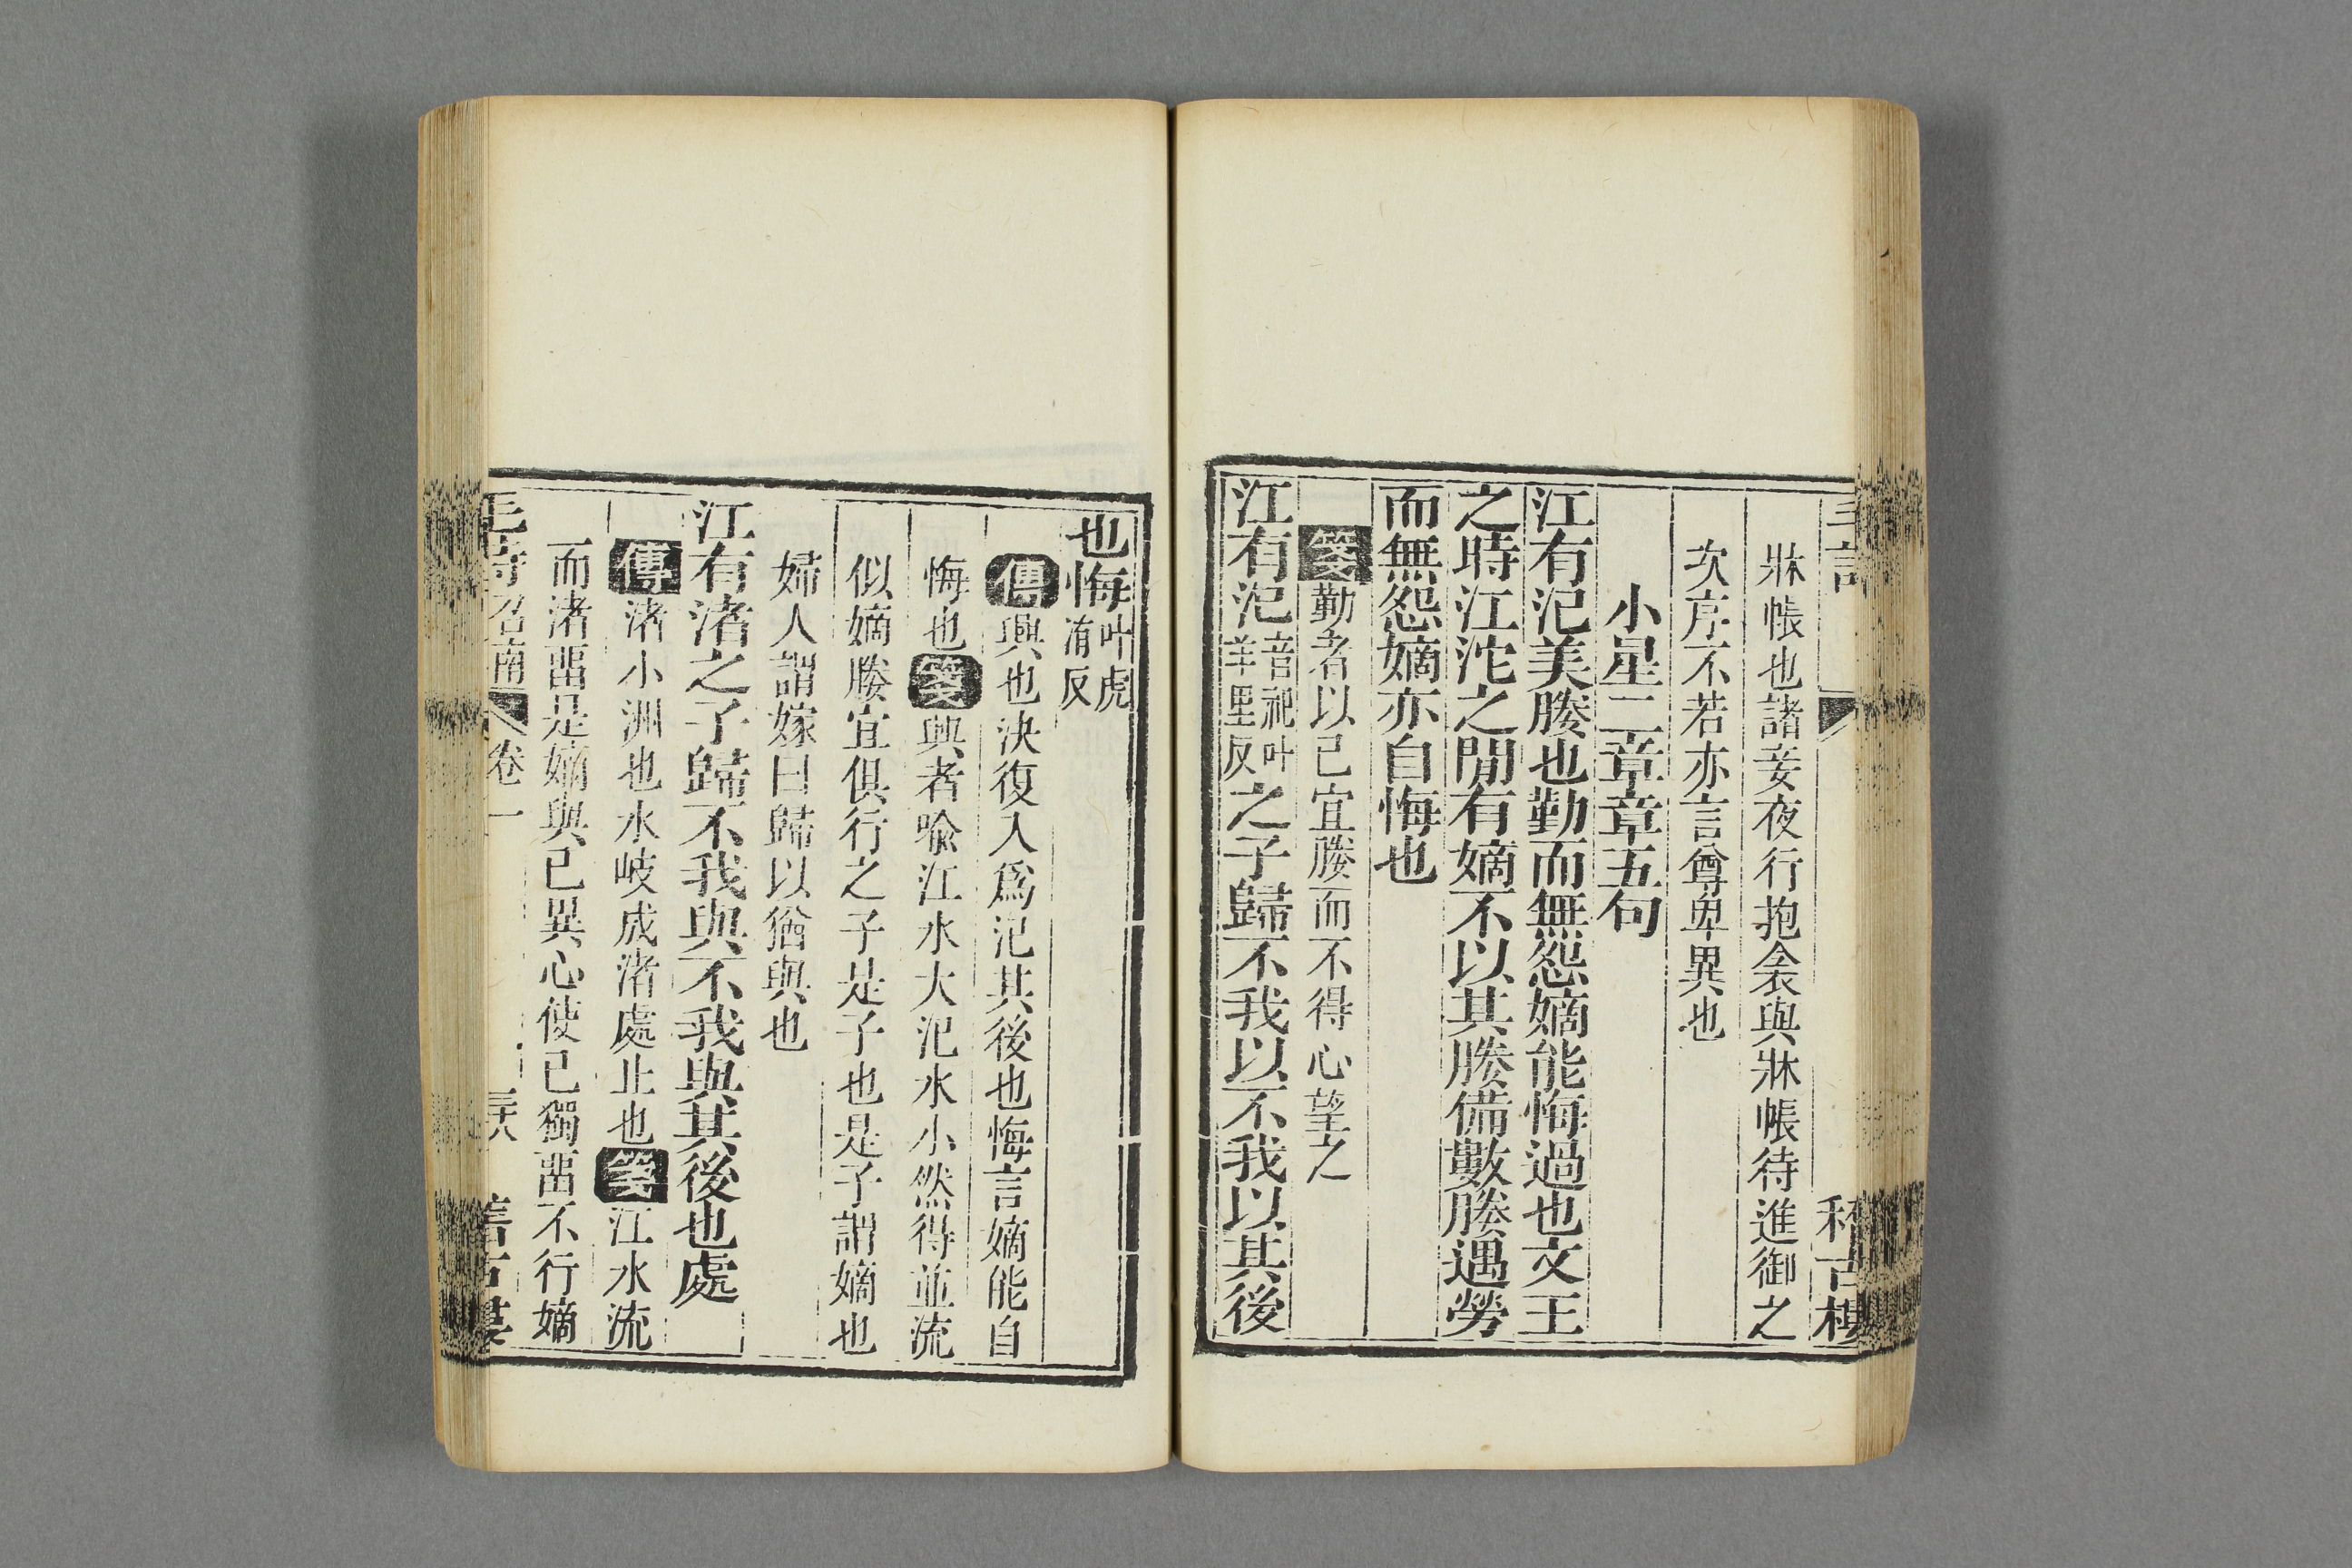 毛詩
稽古樓
牀帳也諸妾夜行抱衾與牀帳待進御之
次序不若亦言尊卑異也
小星二章章五句
江有汜美媵也勤而無怨嫡能悔過也文王
之時江沱之閒有嫡不以其媵備數媵遇勞
而無怨嫡亦自悔也
箋勤者以己宜媵而不得心望之
江有汜音祀叶羊里反之子歸不我以不我以其後
也悔叶虎洧反
傳興也決復入爲汜其後也悔言嫡能自
悔也箋興者喻江水大汜水小然得並流
似嫡媵宜俱行之子是子也是子謂嫡也
婦人謂嫁曰歸以猶與也
江有渚之子歸不我與不我與其後也處
傳渚小洲也水岐成渚處止也箋江水流
而渚畱是嫡與己異心使己獨畱不行嫡
毛詩召南 卷一 三六 稽古樓